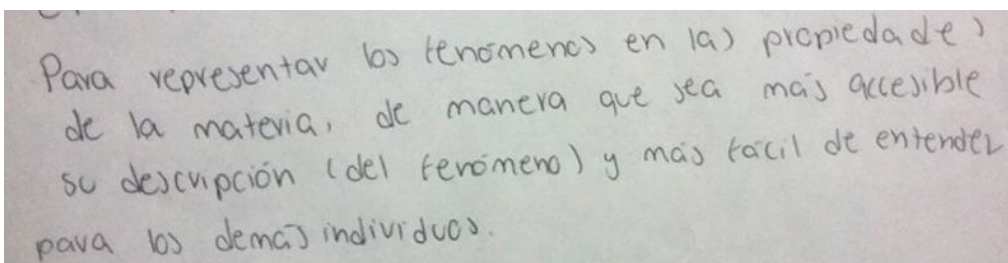 Para representar los fenómenos en las propiedades
de la materia, de manera que sea más accesible
su descripción (del fenómeno) y más fácil de entender
para los demás individuos.